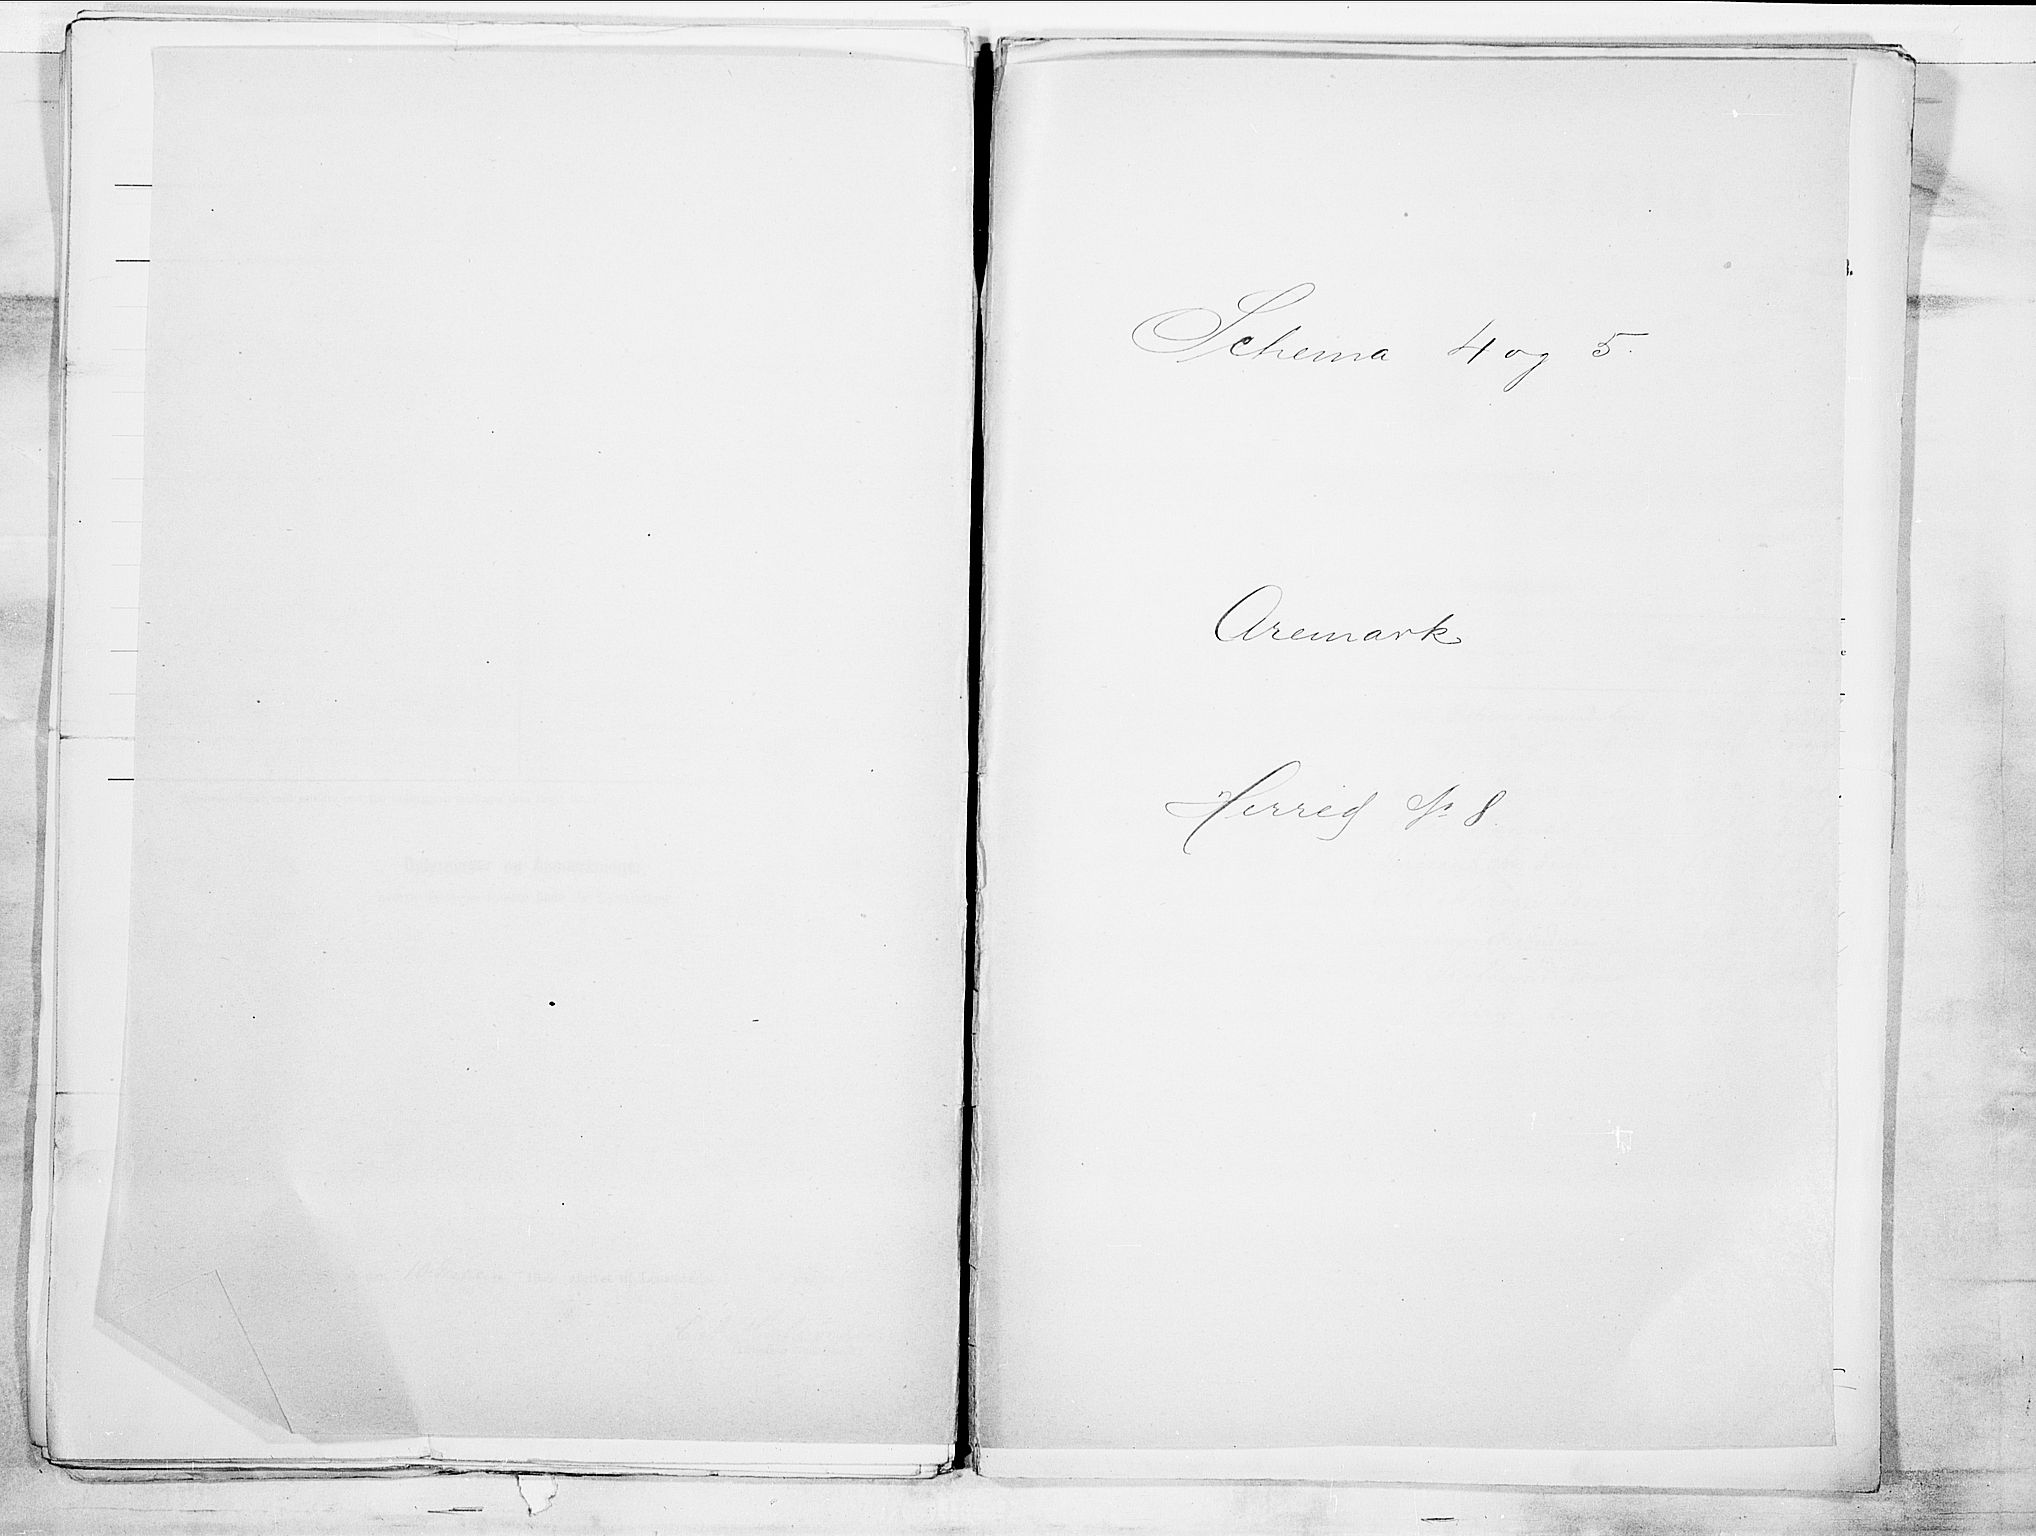 Schema 4 og 5.
Aremark
Herred № 8.